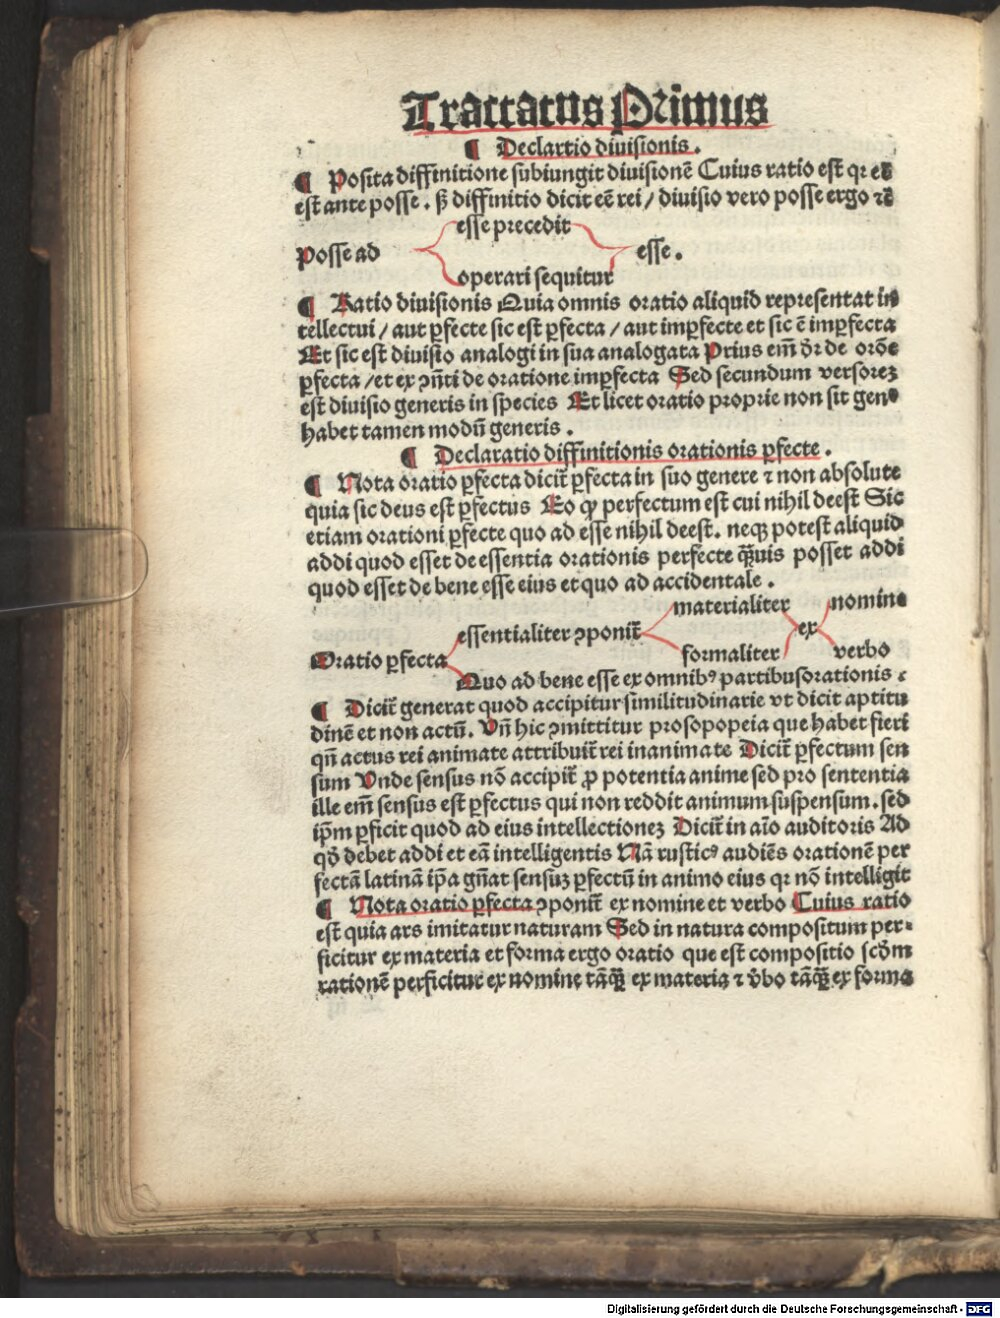 Tractatus Primus
¶ Declartio diuisionis.
¶ Posita diffinitione subiungit diuisionē Cuius ratio est qꝛ eē
est ante posse. sꝫ diffinitio dicit eē rei / diuisio vero posse ergo ⁊ē
esse precedit
Posse ad esse.
operari sequitur
¶ Ratio diuisionis Quia omnis oratio aliquid representat in
tellectui / aut ꝑfecte sic est ꝑfecta / aut imꝑfecte et sic ē imꝑfecta
Et sic est diuisio analogi in sua analogata Prius em̄ dr̄ de orōe
ꝑfecta / et ex ꝯn̄ti de oratione imꝑfecta Sed secundum versoreꝫ
est diuisio generis in species Et licet oratio proprie non sit genꝰ
habet tamen modū generis.
¶ Declaratio diffinitionis orationis ꝑfecte.
¶ Nota oratio ꝑfecta dicit̄ ꝑfecta in suo genere ⁊ non absolute
quia sic deus est ꝑfectus Eo ꝙ perfectum est cui nihil deest Sic
etiam orationi ꝑfecte quo ad esse nihil deest. neqꝫ potest aliquid
addi quod esset de essentia orationis perfecte q̄ꝫuis posset addi
quod esset de bene esse eius et quo ad accidentale.
materialiter nomine
essentialiter ꝯponit̄ ex
formaliter verbo
Oratio ꝑfecta
Quo ad bene esse ex omnibꝰ partibus orationis
¶ Dicit̄ generat quod accipitur similitudinarie vt dicit aptitu
dinē et non actū. Vn̄ hic ꝯmittitur prosopopeia que habet fieri
qn̄ actus rei animate attribuit̄ rei inanimate Dicit̄ ꝑfectum sen
sum Vnde sensus nō accipit̄ ꝓ potentia anime sed pro sententia
ille em̄ sensus est ꝑfectus qui non reddit animum suspensum. sed
ip̄m ꝑficit quod ad eius intellectioneꝫ Dicit̄ in aīo auditoris Ad
qd̄ debet addi et eā intelligentis Nā rusticꝰ audiēs orationē per
fectā latinā ip̄a gn̄at sensuꝫ ꝑfectū in animo eius qꝛ nō intelligit
¶ Nota oratio ꝑfecta ꝯponit̄ ex nomine et verbo Cuius ratio
est quia ars imitatur naturam Sed in natura compositum per⸗
ficitur ex materia et forma ergo oratio que est compositio scd̄m
rationē perficitur ex nomine tāq̄ꝫ ex materia ⁊ v̄bo tāq̄ꝫ ex forma
Digitalisierung gefördert durch die Deutsche Forschungsgemeinschaft - DFG